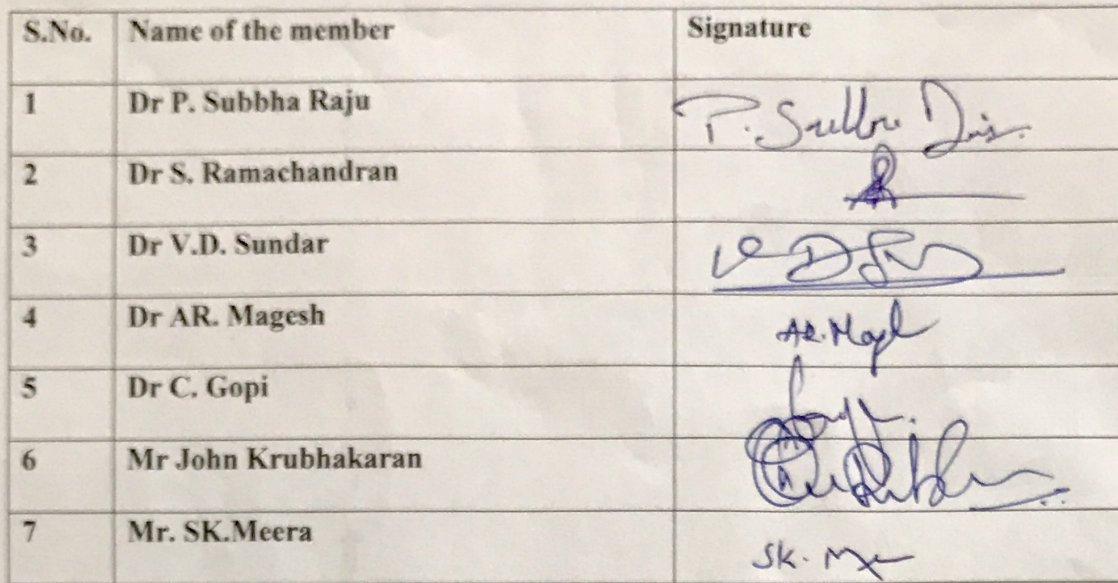 S.No. Name of the member Signature
1 Dr P. Subbha Raju
2 Dr S. Ramachandran
3 Dr V.D. Sundar
4 Dr AR. Magesh
5 Dr C. Gopi
6 Mr John Krubhakaran
7 Mr. SK.Meera SK.